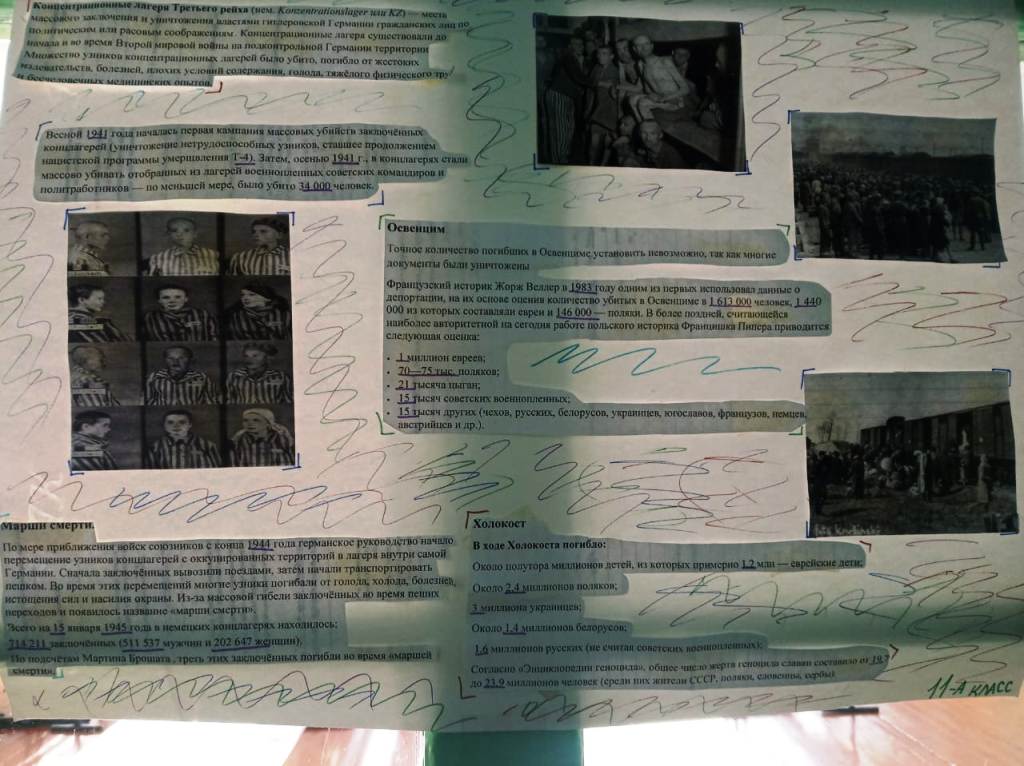 Концентрационные лагеря Третьего рейха (нем. Konzentrationslager или KZ) — места
массового заключения и уничтожения властями гитлеровской Германии гражданских лиц по
политическим или расовым соображениям. Концентрационные лагеря существовали до
начала и во время Второй мировой войны на подконтрольной Германии территории.
Множество узников концентрационных лагерей было убито, погибло от жестоких
издевательств, болезней, плохих условий содержания, голода, тяжёлого физического тру
и бесчеловечных медицинских опытов.
Весной 1941 года началась первая кампания массовых убийств заключённых
концлагерей (уничтожение нетрудоспособных узников, ставшее продолжением
нацистской программы умерщвления Т-4). Затем, осенью 1941 г., в концлагерях стали
массово убивать отобранных из лагерей военнопленных советских командиров и
политработников — по меньшей мере, было убито 34 000 человек.
Освенцим
Точное количество погибших в Освенциме установить невозможно, так как многие
документы были уничтожены
Французский историк Жорж Веллер в 1983 году одним из первых использовал данные о
депортации, на их основе оценив количество убитых в Освенциме в 1 613 000 человек, 1 440
000 из которых составляли евреи и 146 000 — поляки. В более поздней, считающейся
наиболее авторитетной на сегодня работе польского историка Францишка Пипера приводится
следующая оценка:
• 1 миллион евреев;
• 70—75 тыс. поляков;
• 21 тысяча цыган;
• 15 тысяч советских военнопленных;
• 15 тысяч других (чехов, русских, белорусов, украинцев, югославов, французов, немцев,
австрийцев и др.).
Марши смерти.
По мере приближения войск союзников с конца 1944 года германское руководство начало
перемещение узников концлагерей с оккупированных территорий в лагеря внутри самой
Германии. Сначала заключённых вывозили поездами, затем начали транспортировать
пешком. Во время этих перемещений многие узники погибали от голода, холода, болезней,
истощения сил и насилия охраны. Из-за массовой гибели заключённых во время пеших
переходов и появилось название «марши смерти».
Всего на 15 января 1945 года в немецких концлагерях находилось:
714 211 заключённых (511 537 мужчин и 202 647 женщин).
По подсчётам Мартина Брошата, треть этих заключённых погибли во время «маршей
смерти».
Холокост
В ходе Холокоста погибло:
Около полутора миллионов детей, из которых примерно 1,2 млн — еврейские дети;
Около 2,4 миллионов поляков;
3 миллиона украинцев;
Около 1,4 миллионов белорусов;
1,6 миллионов русских (не считая советских военнопленных);
Согласно «Энциклопедии геноцида», общее число жертв геноцида славян составило от 19,7
до 23,9 миллионов человек (среди них жители СССР, поляки, словенцы, сербы)
11-А класс